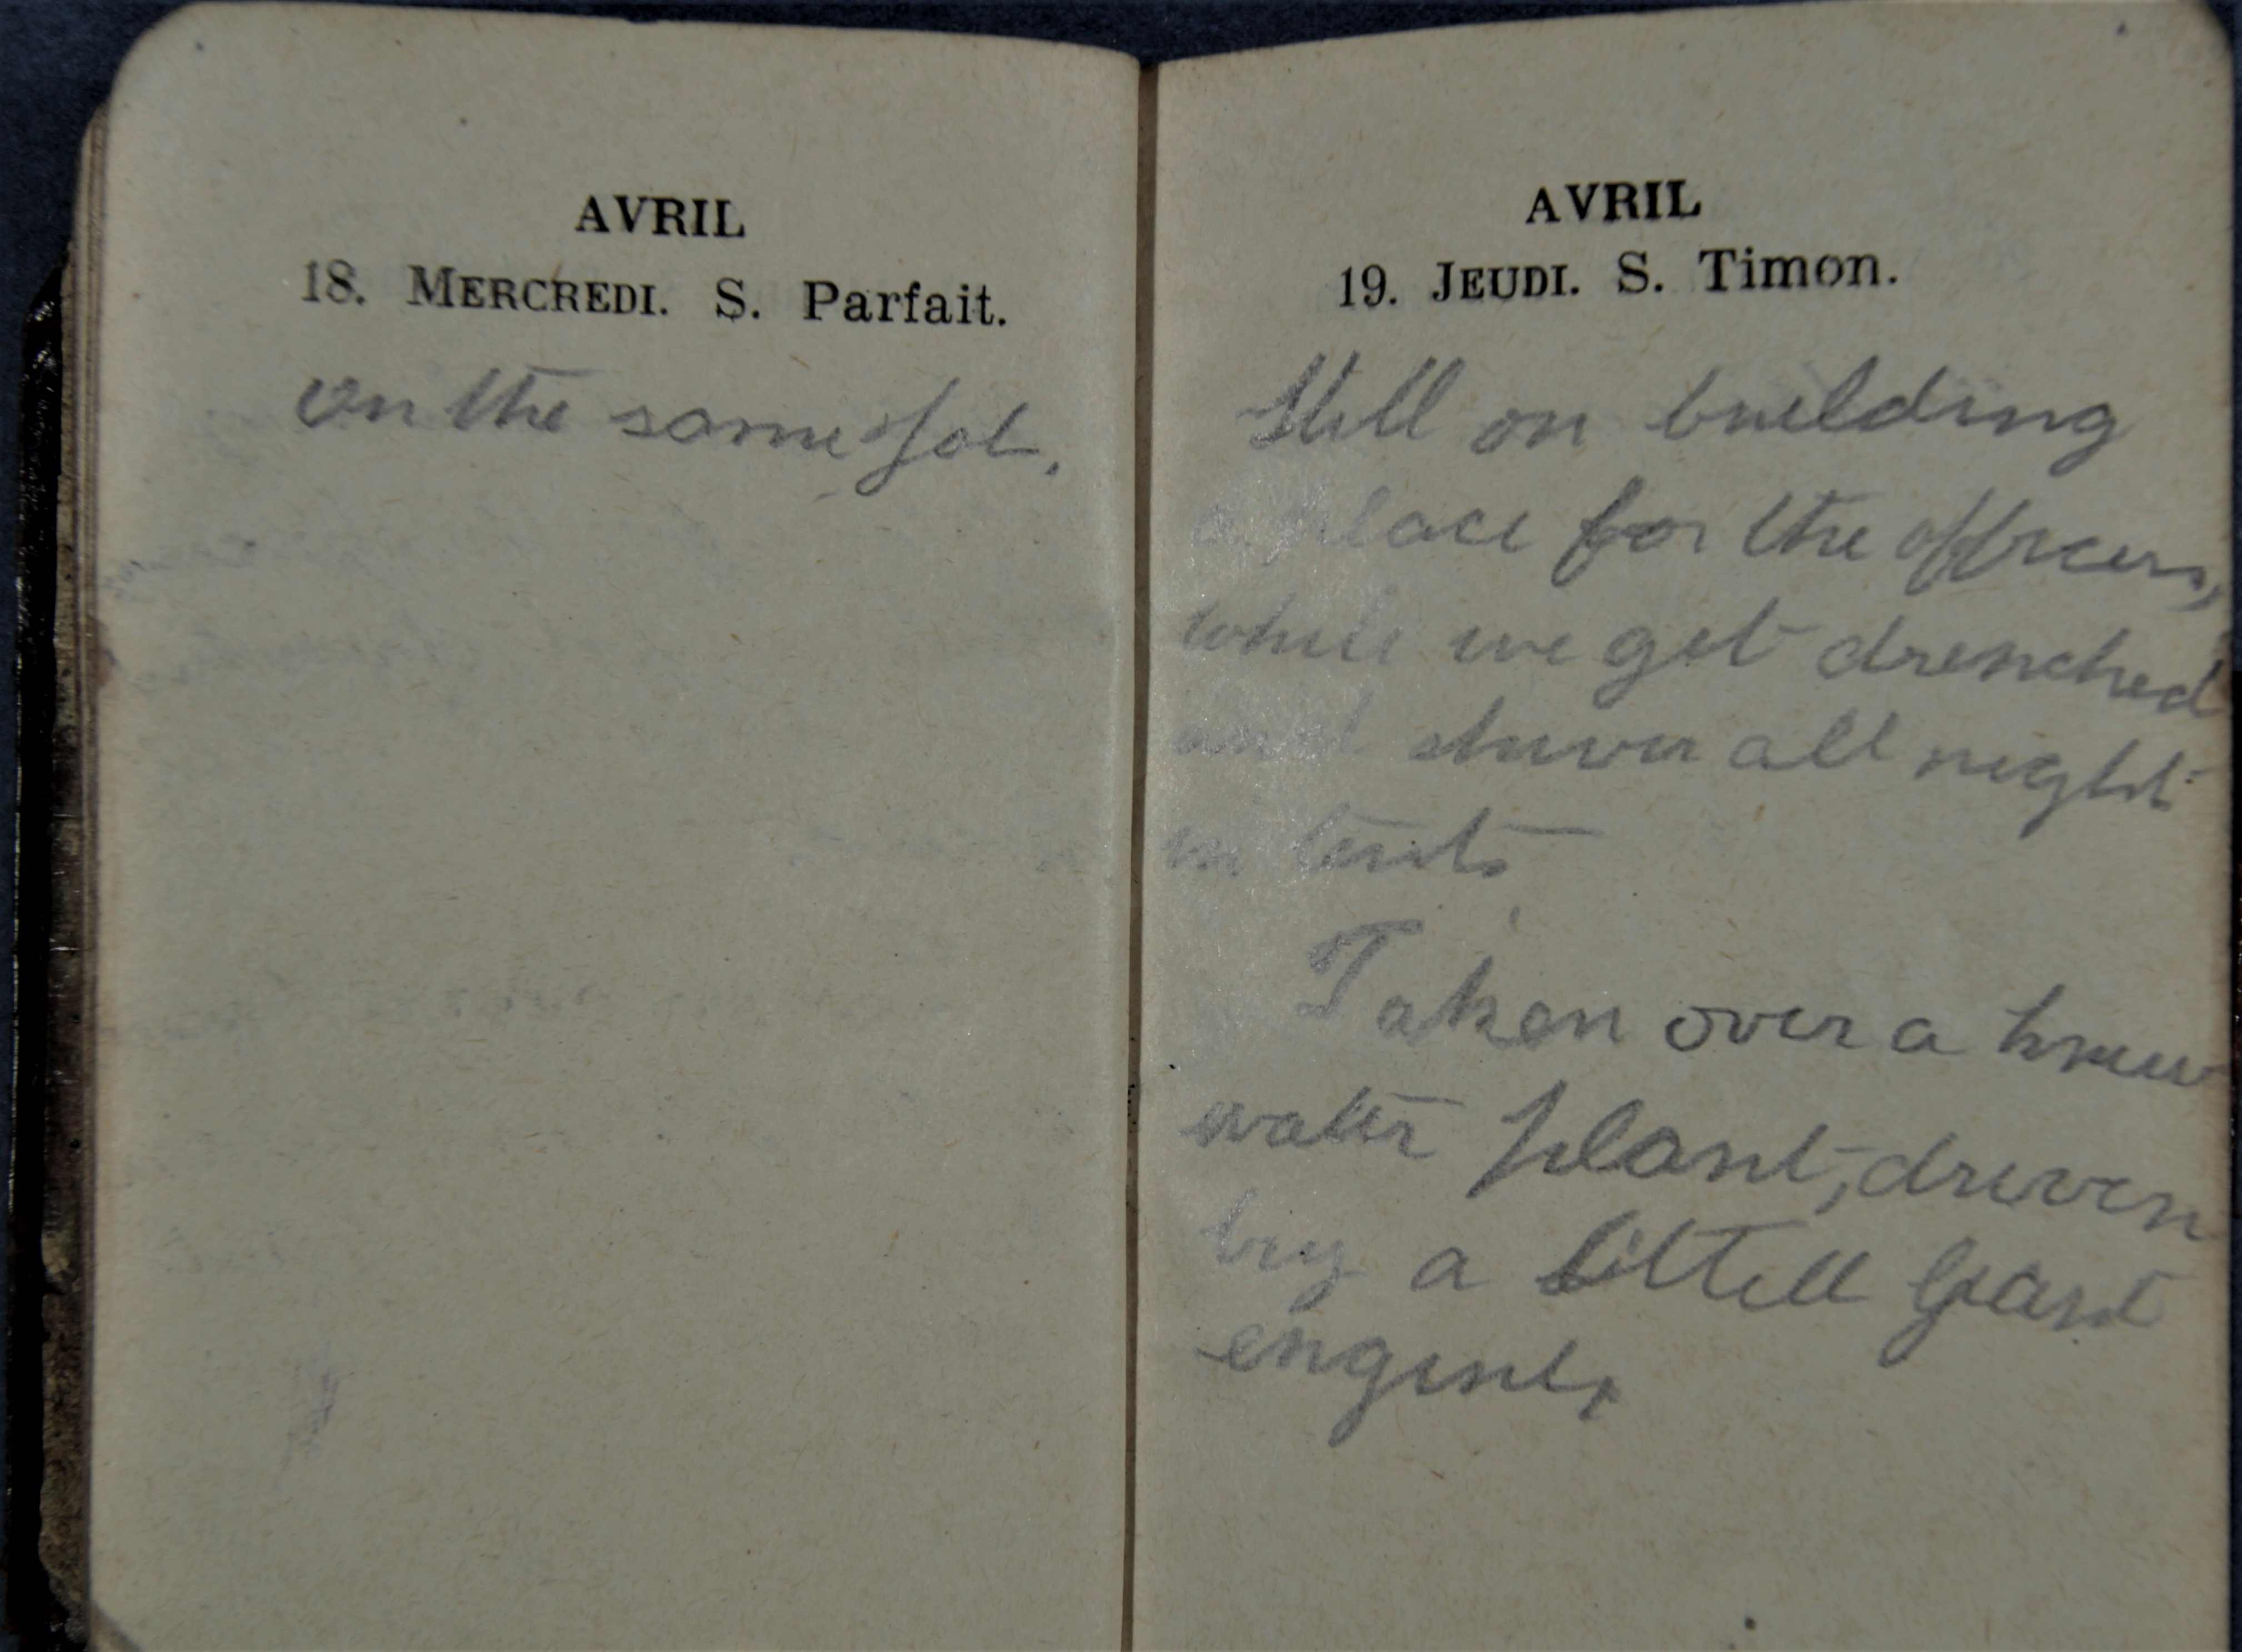 AVRIL
18. MERCREDI. S. Parfait.
on the same Job.
AVRIL
19. JEUDI. S. Timon.
Still on building
a place for the officers,
while we get drenched
and shiver all night
in tents
Taken over a
water plant, driven
by a littell
engine,